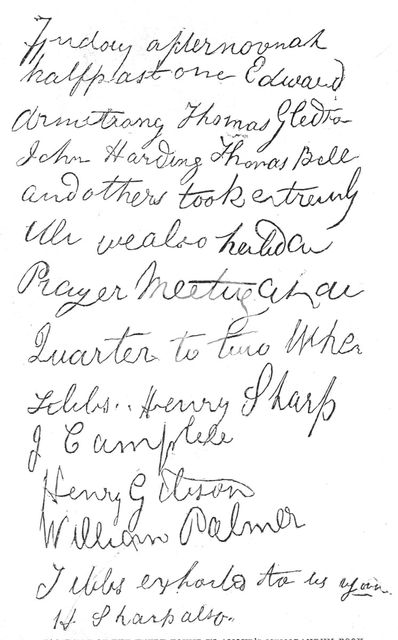 Friday afternoon at
halfpast one Edward
Armstrong Thomas Gledson
John Harding Thomas Bell
and others took extremly
Ill we also held a
Prayer Meeting at
Quarter to two When
Tibbs .. Henry Sharp
J Campbell
Henry Gibson
William Palmer
Tibbs exhorted to us again
H. Sharp also.